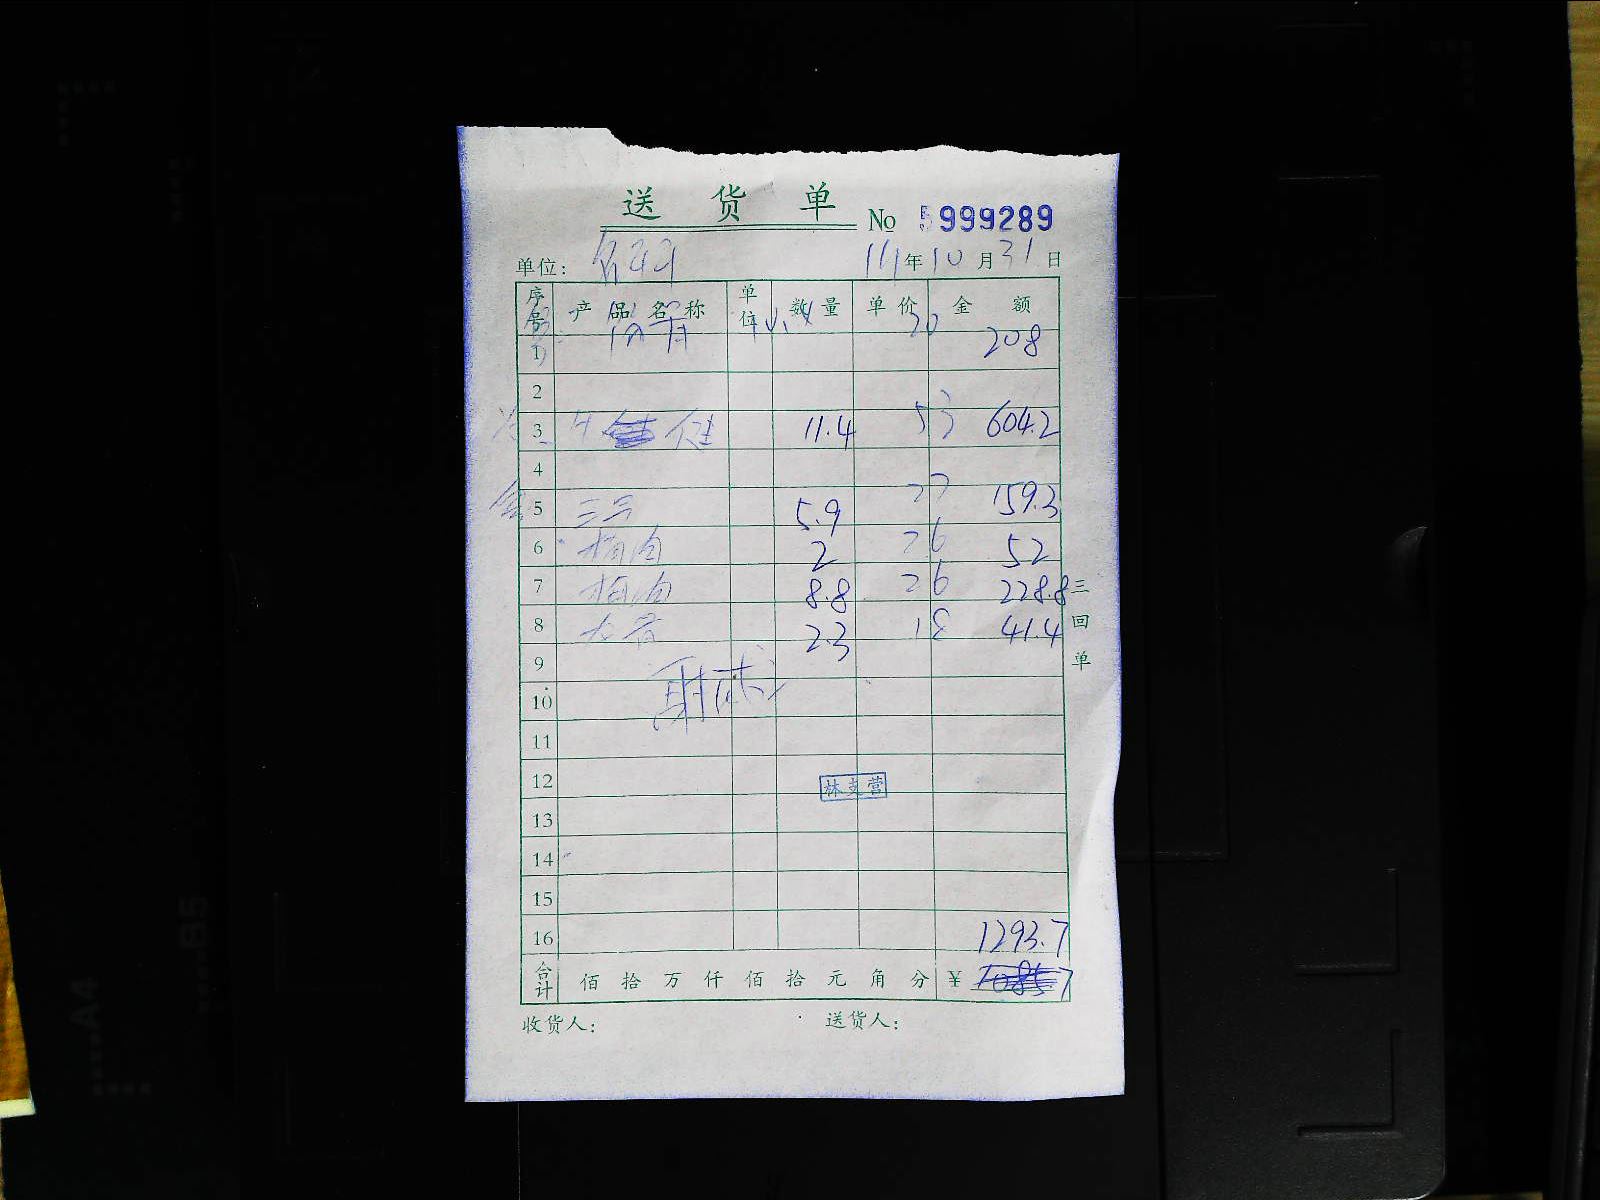 送 货 单
No 5999289
单位:
年10月31日
序号 产品名称 单位 数量 单价 金 额
1 208
2
3 11.4 53 604.2
4
5 三号 5.9 27 159.3
6 梅肉 2 26 52
7 梅肉 8.8 26 228.8
8 大骨 2.3 18 41.4
三回单
9
10
11
12 林支营
13
14
15
16 1293.7
合计 佰 拾 万 仟 佰 拾 元 角 分 ¥
收货人: 送货人: